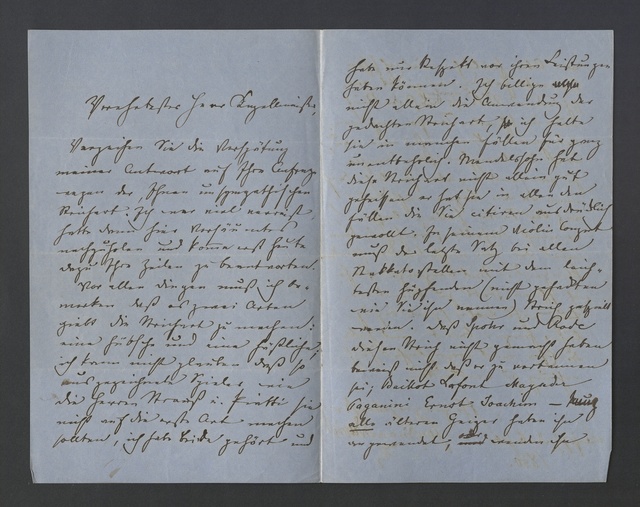 Verehrtester Herr Kapellmeister,
Verzeihen Sie die Verspätung
meiner Antwort auf Ihre Anfrage
wegen der Ihnen unsympathischen
Strichart. Ich war viel verreist
hatte dann hier Versäumtes
nachzuholen und komme erst heute
dazu Ihre Zeilen zu beantworten.
Vor allen Dingen muß ich be-
merken daß es zwei Arten
giebt die Strichart zu machen:
eine hübsche und eine häßliche,
ich kann nicht glauben daß so
ausgezeichnete Spieler wie
die Herren Strauß u. Piatti sie
nicht auf die erste Art machen
sollten, ich habe beide gehört und
habe nur Respekt vor ihren Leistungen
haben können. Ich billige
nicht allein die Anwendung der
gedachten Strichart, ich halte
sie in manchen Fällen für ganz
unentbehrlich. Mendelssohn hat
diese Strichart nicht allein gut
geheißen er hat sie in allen den
Fällen die Sie citiren ausdrücklich
gewollt. In seinem Violin Conzert
muß der letzte Satz bei allen
Stakkatostellen mit dem leich-
testen hüpfenden (nicht gehackten
wie Sie ihn nennen) Strich gespielt
werden. Daß Spohr und Rode
diesen Strich nicht gemacht haben
beweist nicht daß er zu verdammen
sei; Baillot Lafont Mazas
Paganini Ernst Joachim –
alle älteren Geiger haben ihn
angewendet, und wenden ihn